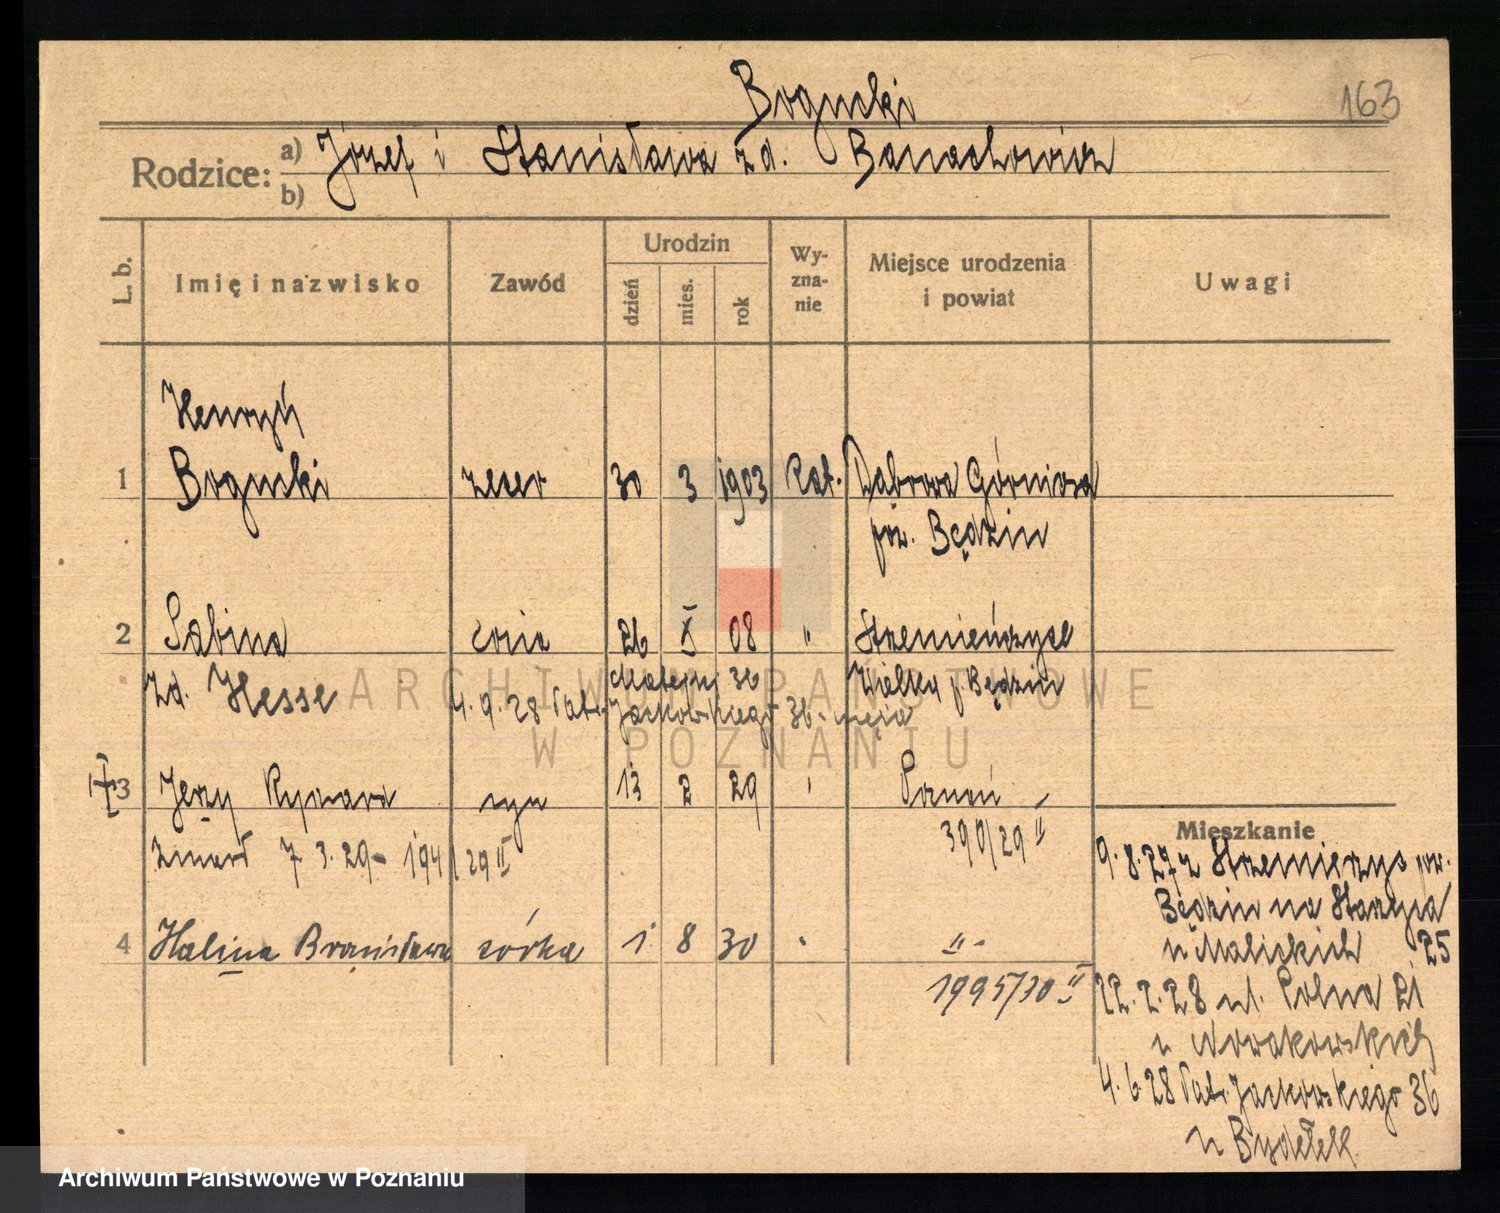 Bogucki
163
Rodzice: a) Józef i Stanisława zd. Banachowicz
b)
L. b.
Imię i nazwisko
Zawód
Urodzin
dzień
mies.
rok
Wy-
zna-
nie
Miejsce urodzenia
i powiat
Uwagi
Henryk
1 Bogucki zecer 30 3 1903 Rat. Dąbrowa Górnicza
pow. Będzin
2 Sabina 26 X 08 "
zd. Hesse
Wielkie p. Będzin
4.9.28 Matejki 36
Jackowskiego 36
ARCHIWUM PAŃSTWOWE
W POZNANIU
3 Jerzy Ryszard syn 13 2 29 Poznań
390/29 II
zmarł 7 3. 29 - 194/29 II
4 Halina Bronisława córka 1 8 30 "
1995/30 II
Mieszkanie
9.8.27 z Strzemieszyc pow.
Będzin na
u Malickich 25
22.2.28 ul. Polna 21
u Nowakowskich
4.6.28 Jackowskiego 36
u
Archiwum Państwowe w Poznaniu